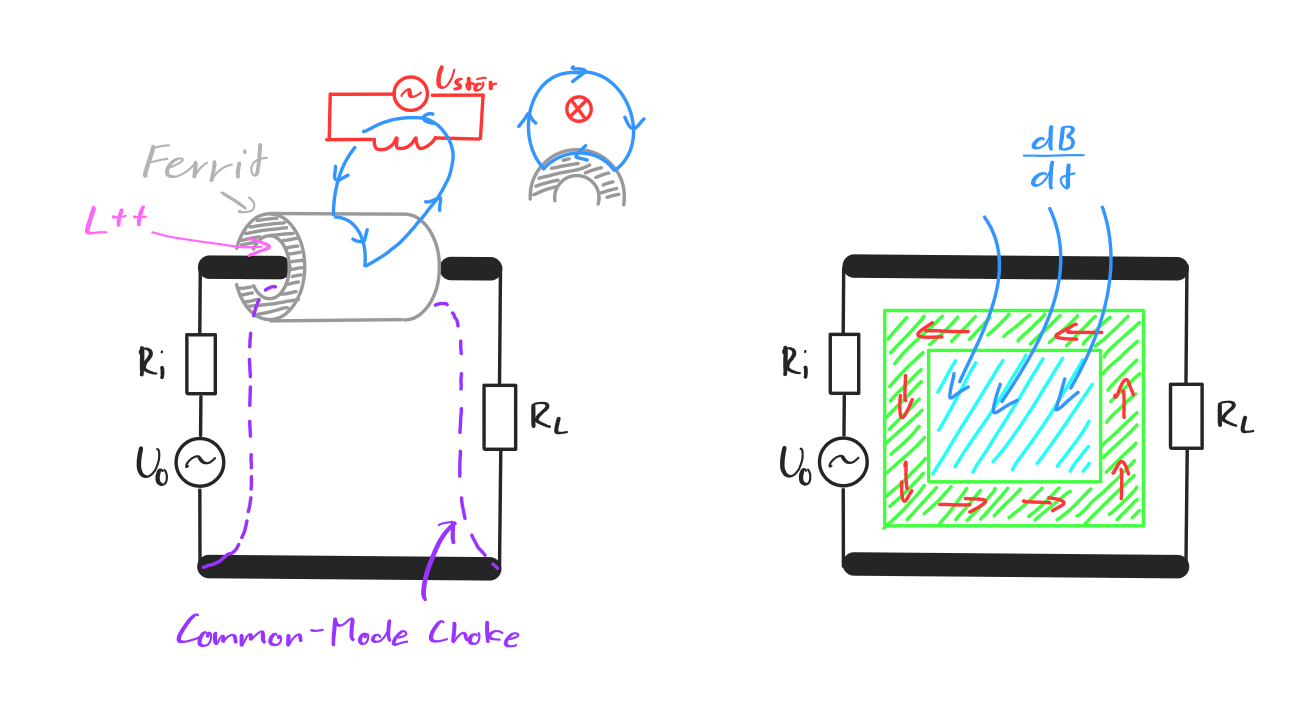 Ustör
Ferrit
L++
Ri
U0
RL
Common-Mode Choke
dB
dt
Ri
U0
RL